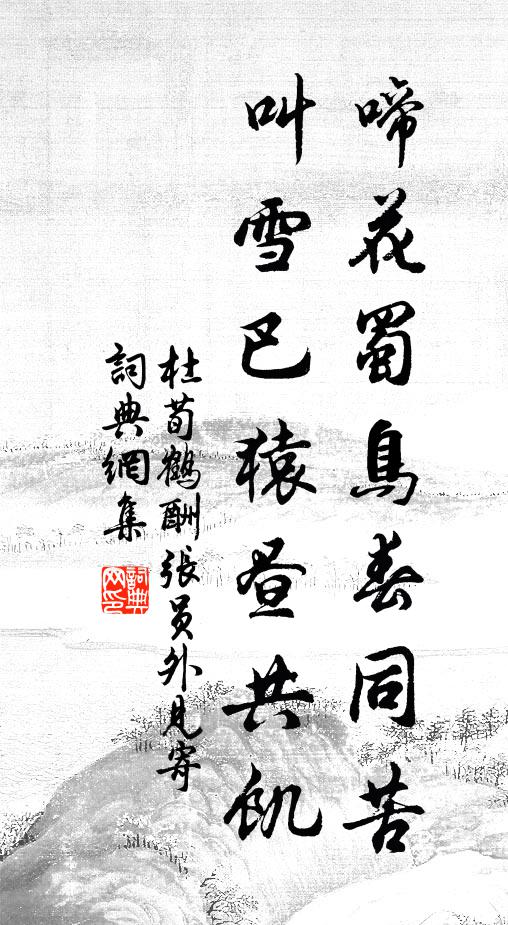 啼花蜀鳥春同苦
叫雪巴猿晝共飢
杜荀鶴酬張員外見寄
詞典網集
詞典網印